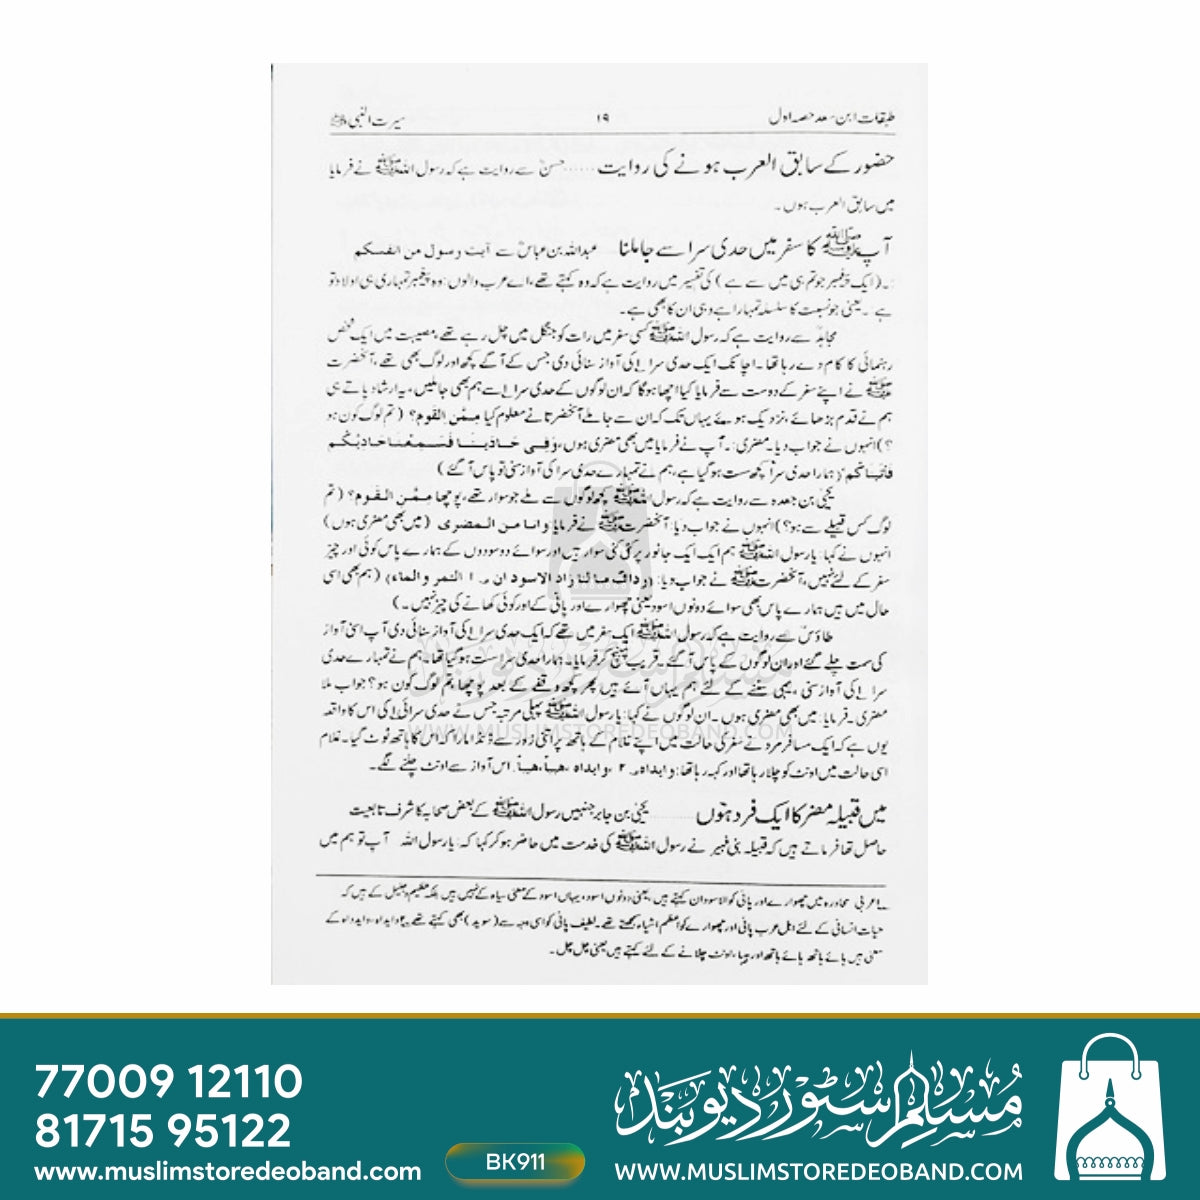 طبقات ابن سعد حصہ اول ۱۹ سیرت النبی ﷺ
حضور کے سابق العرب ہونے کی روایت ...... حسنؓ سے روایت ہے کہ رسول اللہ ﷺ نے فرمایا
میں سابق العرب ہوں۔
آپ ﷺ کا سفر میں حدی سرا سے جا ملنا عبداللہ بن عباسؓ سے آیت رسول من انفسکم
(ایک پیغمبر جو تم ہی میں سے ہے) کی تفسیر میں روایت ہے کہ وہ کہتے تھے، اے عرب والوں: وہ پیغمبر تمہاری ہی اولاد تو
ہے: یعنی جو نسبت کا سلسلہ تمہارا ہے وہی ان کا بھی ہے۔
مجاہدؒ سے روایت ہے کہ رسول اللہ ﷺ کسی سفر میں رات کو جنگل میں چل رہے تھے، مصیبت میں ایک شخص
رہنمائی کا کام دے رہا تھا۔ اچانک ایک حدی سرا کی آواز سنائی دی جس کے آگے کچھ اور لوگ بھی تھے، آنحضرت
ﷺ نے اپنے سفر کے دوست سے فرمایا کیا اچھا ہوگا کہ ان لوگوں کے حدی سرا سے ہم بھی جا ملیں، یہ ارشاد پاتے ہی
ہم نے قدم بڑھائے، نزدیک ہوئے یہاں تک کہ ان سے جا ملے آنحضرتؐ نے معلوم کیا ممن القوم؟ (تم لوگ کون ہو
؟) انہوں نے جواب دیا۔ مضری:۔ آپ نے فرمایا میں بھی مضری ہوں، وَفی حادینا فسمعنا حادیکم
فاتیناکم (ہمارا حدی سرا کچھ سست ہو گیا ہے، ہم نے تمہارے حدی سرا کی آواز سنی تو پاس آ گئے)
یحییٰ بن جعدہ سے روایت ہے کہ رسول اللہ ﷺ کچھ لوگوں سے ملے جو سوار تھے، پوچھا ممن القوم؟ (تم
لوگ کس قبیلے سے ہو؟) انہوں نے جواب دیا: آنحضرت ﷺ نے فرمایا وانا من المضری (میں بھی مضری ہوں)
انہوں نے کہا: یا رسول اللہ ﷺ ہم ایک ایک جانور پر کئی کئی سوار ہیں اور سوائے دو سودوں کے ہمارے پاس کوئی اور چیز
سفر کے لئے نہیں، آنحضرت ﷺ نے جواب دیا: (وذاک مالنا زاد الاسودان ۱ التمر والماء) (ہم بھی اسی
حال میں ہیں ہمارے پاس بھی سوائے دونوں اسود یعنی چھوارے اور پانی کے اور کوئی کھانے کی چیز نہیں۔)
طاؤسؒ سے روایت ہے کہ رسول اللہ ﷺ ایک سفر میں تھے کہ ایک حدی سرا کی آواز سنائی دی آپ اسی آواز
کی سمت چلے گئے اور ان لوگوں کے پاس آ گئے۔ قریب پہنچ کر فرمایا۔ ہمارا حدی سرا سست ہو گیا تھا۔ ہم نے تمہارے حدی
سرا کی آواز سنی، یہی سننے کے لئے ہم یہاں آئے ہیں پھر کچھ وقفے کے بعد پوچھا تم لوگ کون ہو؟ جواب ملا
مضری۔ فرمایا: میں بھی مضری ہوں۔ ان لوگوں نے کہا: یا رسول اللہ ﷺ پہلی مرتبہ جس نے حدی سرائی کی اس کا واقعہ
یوں ہے کہ ایک مسافر مرد نے سفر کی حالت میں اپنے غلام کے ہاتھ پر اتنی زور سے ڈنڈا مارا کہ اس کا ہاتھ ٹوٹ گیا۔ غلام
اسی حالت میں اونٹ کو چلا رہا تھا اور کہہ رہا تھا: وایداہ ۲، وایداہ، ھیبا، ھیبا. اس آواز سے اونٹ چلنے لگے۔
میں قبیلہ مضر کا ایک فرد ہوں ...... یحییٰ بن جابر جنہیں رسول اللہ ﷺ کے بعض صحابہ کا شرف تابعیت
حاصل تھا فرماتے ہیں کہ قبیلہ بنی فہیر نے رسول اللہ ﷺ کی خدمت میں حاضر ہو کر کہا کہ: یا رسول اللہ آپ تو ہم میں
۱ عربی محاورہ میں چھوارے اور پانی کو الاسودان کہتے ہیں، یعنی دونوں اسود، یہاں اسود کے معنی سیاہ کے نہیں ہیں بلکہ عظیم و جلیل کے ہیں کہ
حیات انسانی کے لئے اہل عرب پانی اور چھوارے کو اعظم اشیاء سمجھتے تھے۔ لطیف پانی کو اسی وجہ سے (سوید) بھی کہتے تھے۔ ۲ وایداہ، وایداہ کے
معنی ہیں ہائے ہاتھ ہائے ہاتھ اور ہیبا، اونٹ چلانے کے لئے کہتے ہیں یعنی چل چل۔
مسلم سٹور دیوبند
WWW.MUSLIMSTOREDEOBAND.COM
77009 12110
81715 95122
www.muslimstoredeoband.com
BK911
مسلم سٹور دیوبند
WWW.MUSLIMSTOREDEOBAND.COM